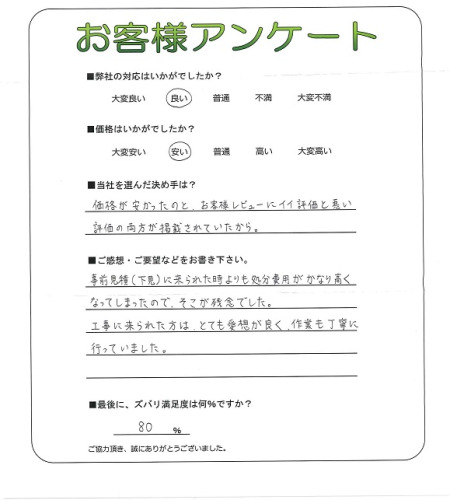 お客様アンケート
■弊社の対応はいかがでしたか?
大変良い 良い 普通 不満 大変不満
■価格はいかがでしたか?
大変安い 安い 普通 高い 大変高い
■当社を選んだ決め手は?
価格が安かったのと、お客様レビューにイイ評価と悪い
評価の両方が掲載されていたから。
■ご感想・ご要望などをお書き下さい。
事前見積(下見)に来られた時よりも処分費用がかなり高く
なってしまったので、そこが残念でした。
工事に来られた方は、とても愛想が良く、作業も丁寧に
行っていました。
■最後に、ズバリ満足度は何%ですか?
80 %
ご協力頂き、誠にありがとうございました。